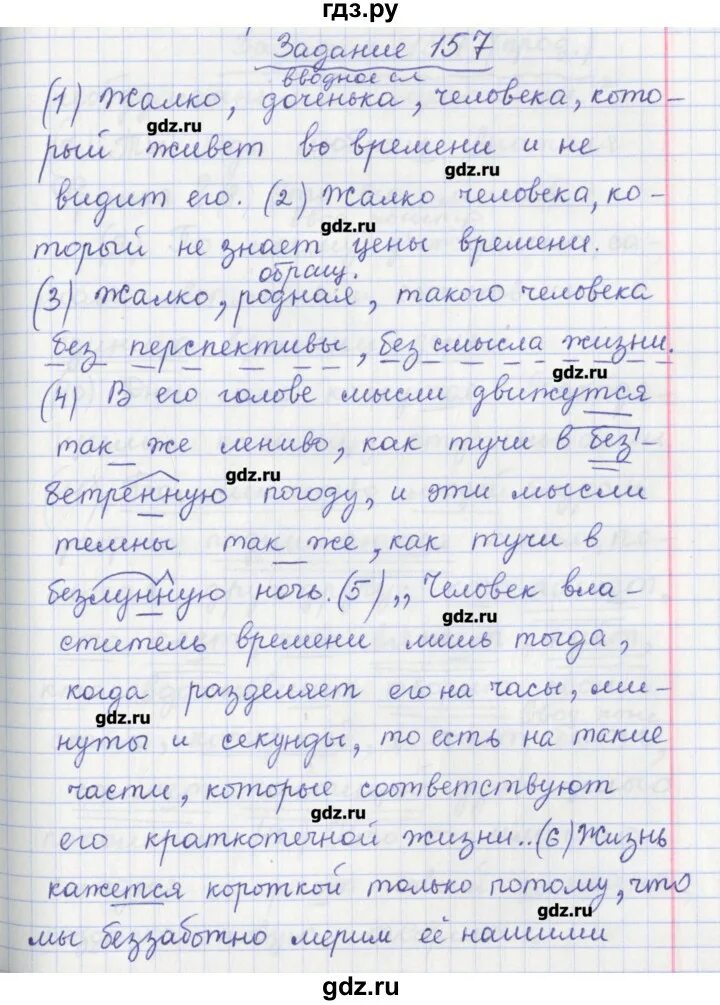 гдз.ру
Задание 157
вводное сл
(1) Жалко, доченька, человека, кото-
gdz.ru
рый живет во времени и не
gdz.ru
видит его. (2) Жалко человека, ко-
gdz.ru
торый не знает цены времени.
обращ.
(3) Жалко, родная, такого человека
без перспективы, без смысла жизни.
gdz.ru
(4) В его голове мысли движутся
так же лениво, как тучи в без-
gdz.ru
ветренную погоду, и эти мысли
темны так же, как тучи в
gdz.ru
безлунную ночь. (5) „Человек вла-
gdz.ru
ститель времени лишь тогда,
когда разделяет его на часы, ми-
gdz.ru
нуты и секунды, то есть на такие
части, которые соответствуют
gdz.ru
его краткотечной жизни.. (6) Жизнь
кажется короткой только потому, что
gdz.ru
мы беззаботно мерим её нашими
gdz.ru